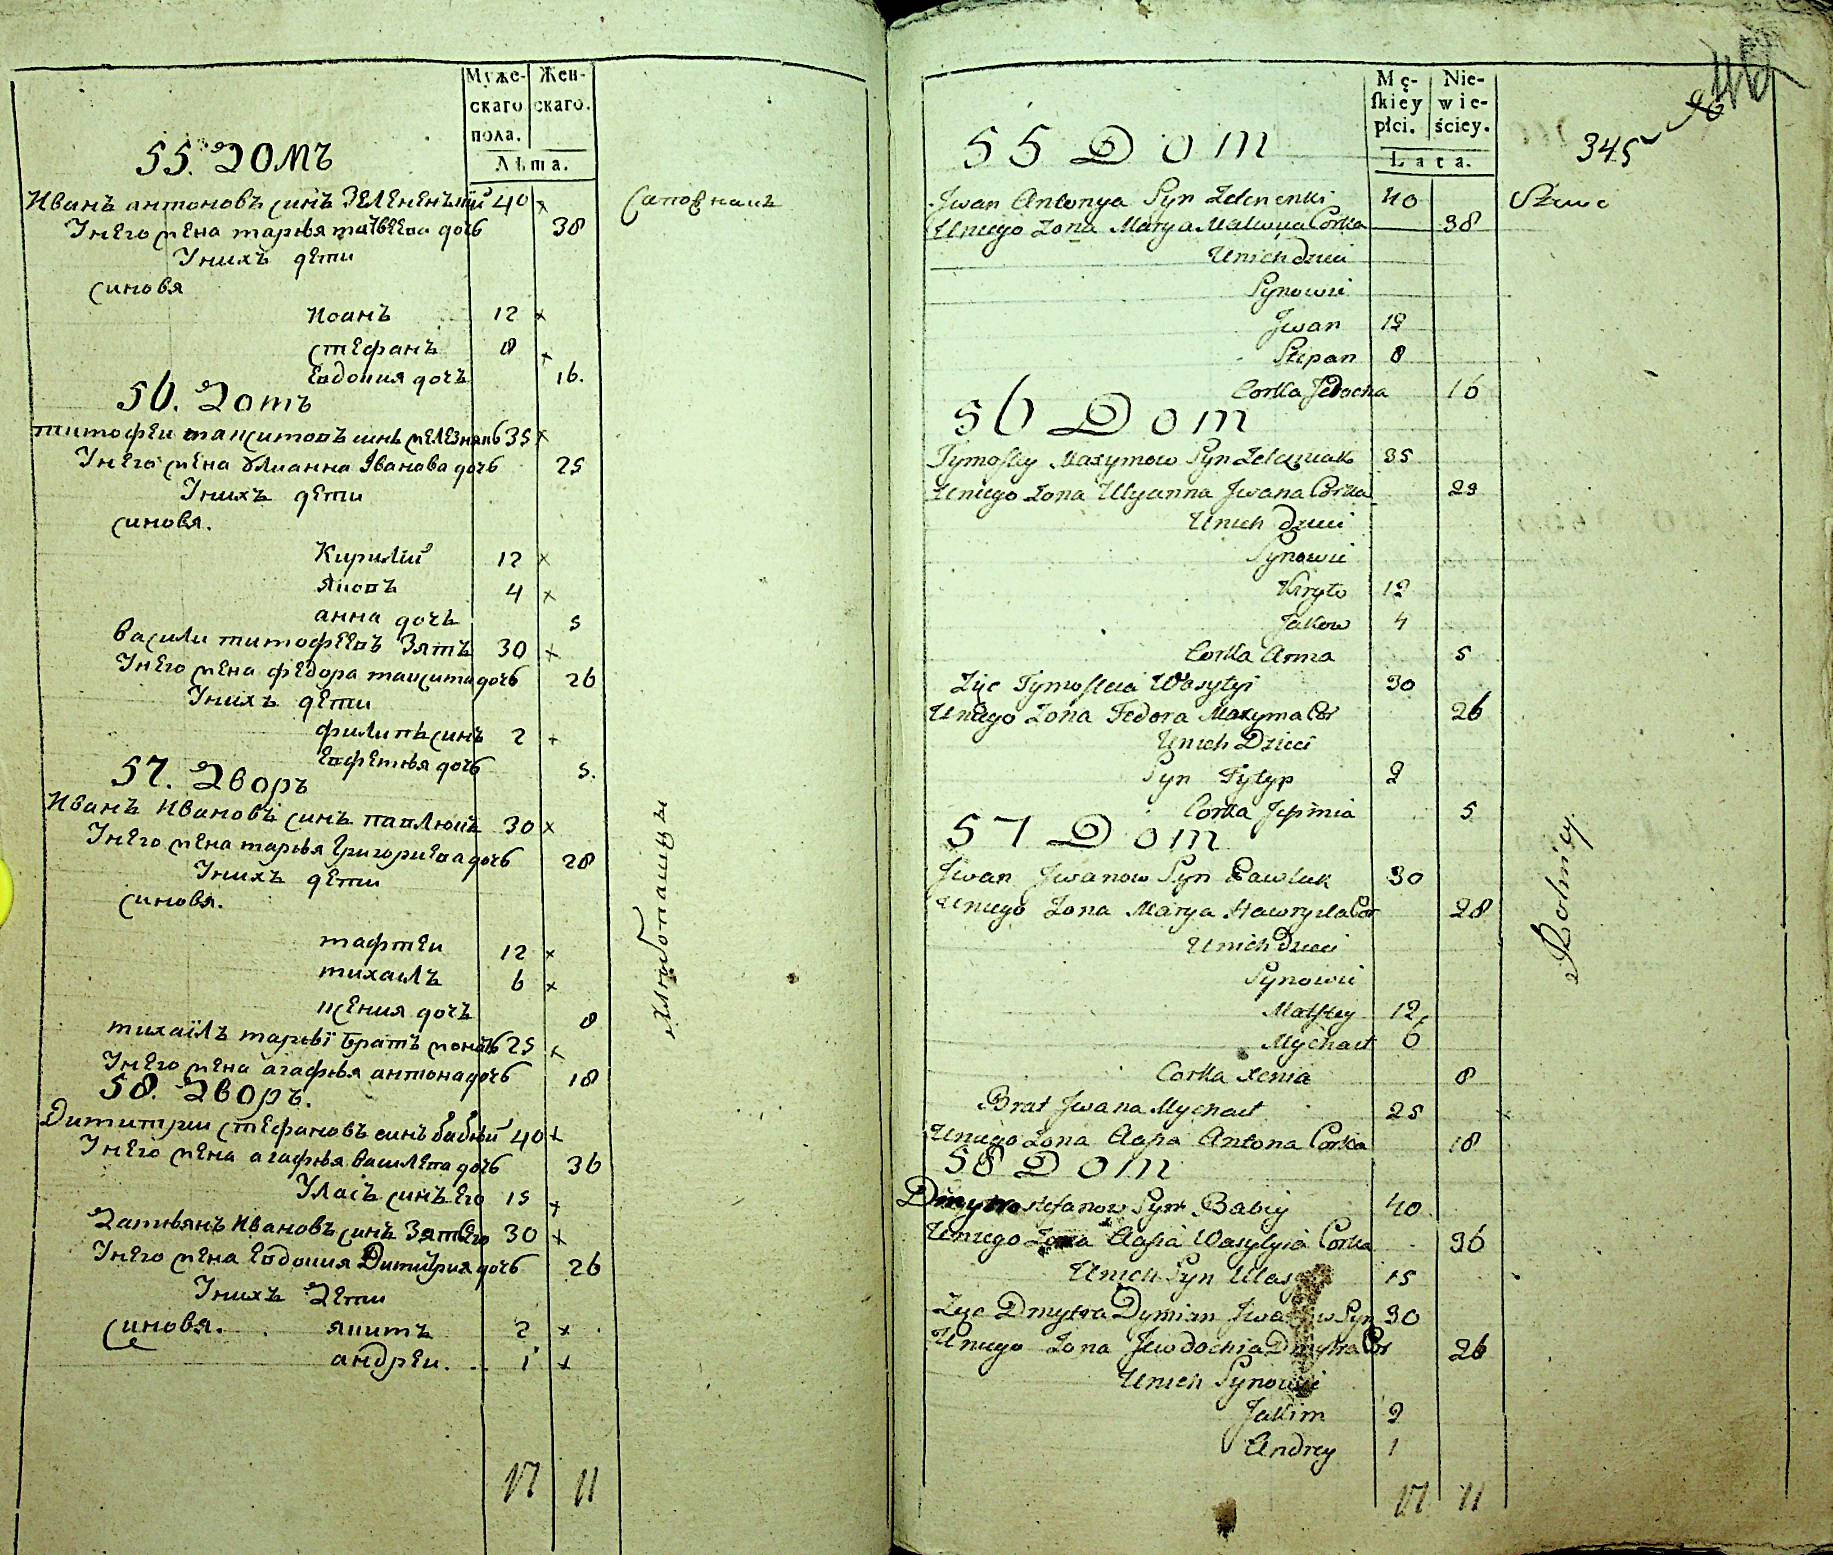 Муже- Жен-
скаго скаго.
пола.
Лѣта.
55. Домъ
Иванъ антоновъ синъ Зелененъкий 40 x
Унего жена марья матвеева дочь 38
Унихъ дети
синовя
Иоанъ 12 x
стефанъ 8 x
Евдокия дочъ 16.
56. Домъ
тимофеи максимовъ синъ 35 x
Унего жена Улианна Іванова дочь 25
Унихъ дети
синовя.
Кирилій 12 x
Яковъ 4 x
анна дочь 5
васили тимофеевъ Зятъ 30 x
Унего жена федора максима дочь 26
Унихъ дети
филипъ синъ 2 x
Евфемья дочь 5.
57. Дворъ
Иванъ Ивановъ синъ павлюкъ 30 x
Унего жена марья Григориева дочь 28
Унихъ дети
синовя.
мафтеи 12 x
михаилъ 6 x
ксения дочъ 8
михаілъ марьві братъ 25 x
Унего жена агафья антона дочь 18
58. Дворъ.
Димитрии стефановъ синъ бабъий 40 x
Унего жена агафья василева дочь 36
Уласъ синъ Его 15 x
Дамьянъ Ивановъ синъ Зят Его 30 x
Унего жена Евдокия Димитрия дочь 26
Унихъ Дети
синовя. якимъ 2 x
андреи. 1 x
17 11
Хлибопашцы
Mę- Nie-
skiey wie-
płci. ściey.
Lata.
345
55 Dom
Jwan Antonya Syn Zelenenki 40
Uniego Zona Marya Matwija Corka 38
Unich dzieci
Synowie
Jwan 12
Stepan 8
Corka Jedocha 16
56 Dom
Tymofiey Maxymow Syn Zelezniak 35
Uniego Zona Ulyanna Jwana Corka 25
Unich dzieci
Synowie
Kiryło 12
Jakow 4
Corka Anna 5
Zięc Tymofieia Wasylyi 30
Uniego Zona Fedora Maxyma Cor 26
Unich Dzieci
Syn Fylyp 2
Corka Jefimia 5
57 Dom
Jwan Jwanow Syn Pawluk 30
Uniego Zona Marya Hawryła Cor 28
Unich Dzieci
Synowie
Matfiey 12
Mychael 6
Corka Xenia 8
Brat Jwana Mychael 25
Uniego Zona Aafia Antona Corka 18
58 Dom
Dmytro stefanow Syn Babiy 40
Uniego Zona Aafia Wasylyia Corka 36
Unich Syn Ulas 15
Zięc Dmytra Dymian Jwanow Syn 30
Uniego Zona Jewdochia Dmytra Cor 26
Unich Synowie
Jakim 2
Andrey 1
17 11
Rolnicy